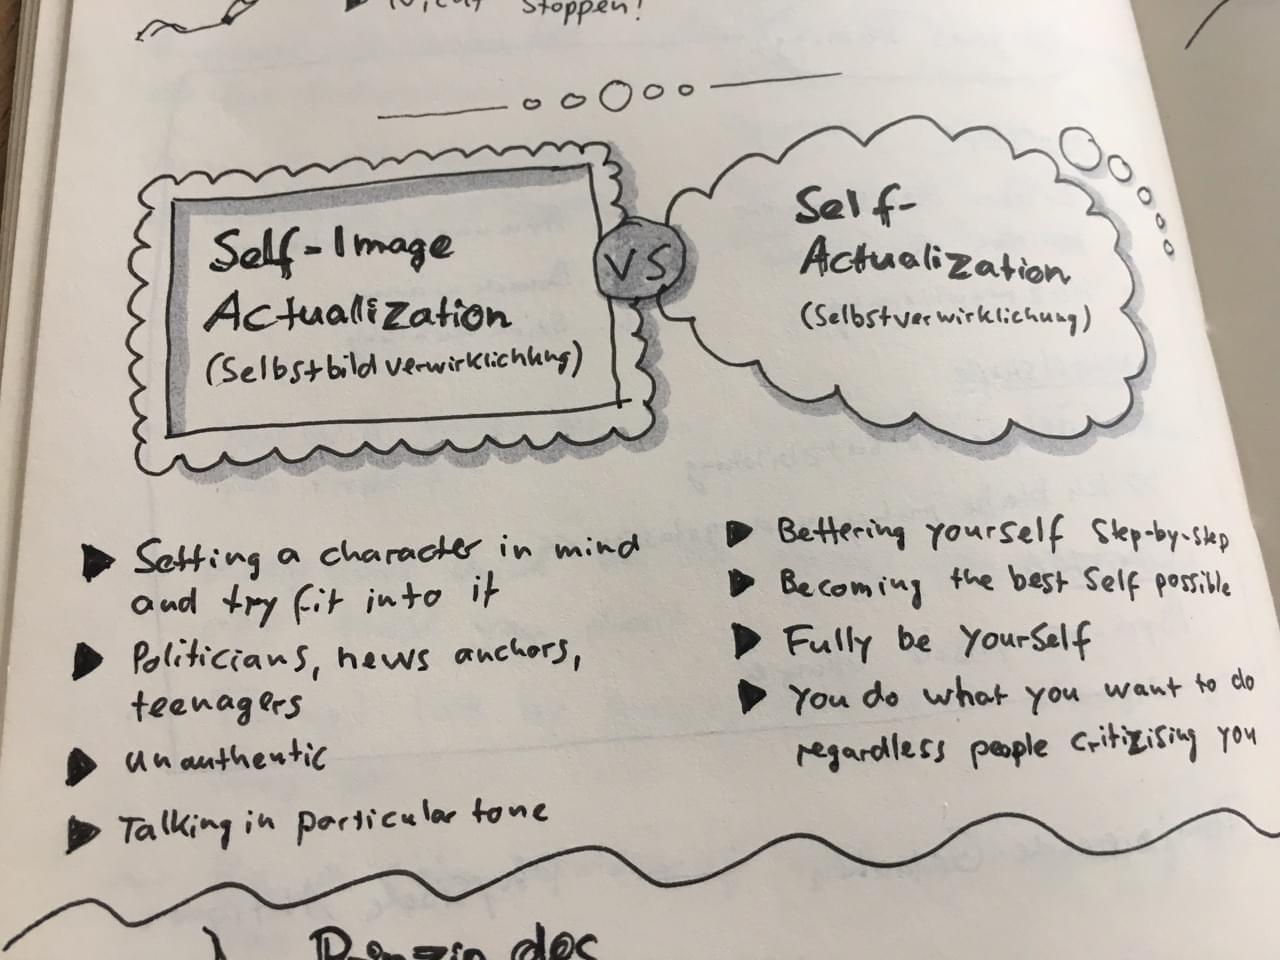 Nicht stoppen!
Self-Image
Actualization
(Selbstbildverwirklichung)
VS
Self-
Actualization
(Selbstverwirklichung)
Setting a character in mind
and try fit into it
Politicians, news anchors,
teenagers
unauthentic
Talking in particular tone
Bettering yourself Step-by-step
Becoming the best Self possible
Fully be yourself
You do what you want to do
regardless people critizising you
Prinzip des